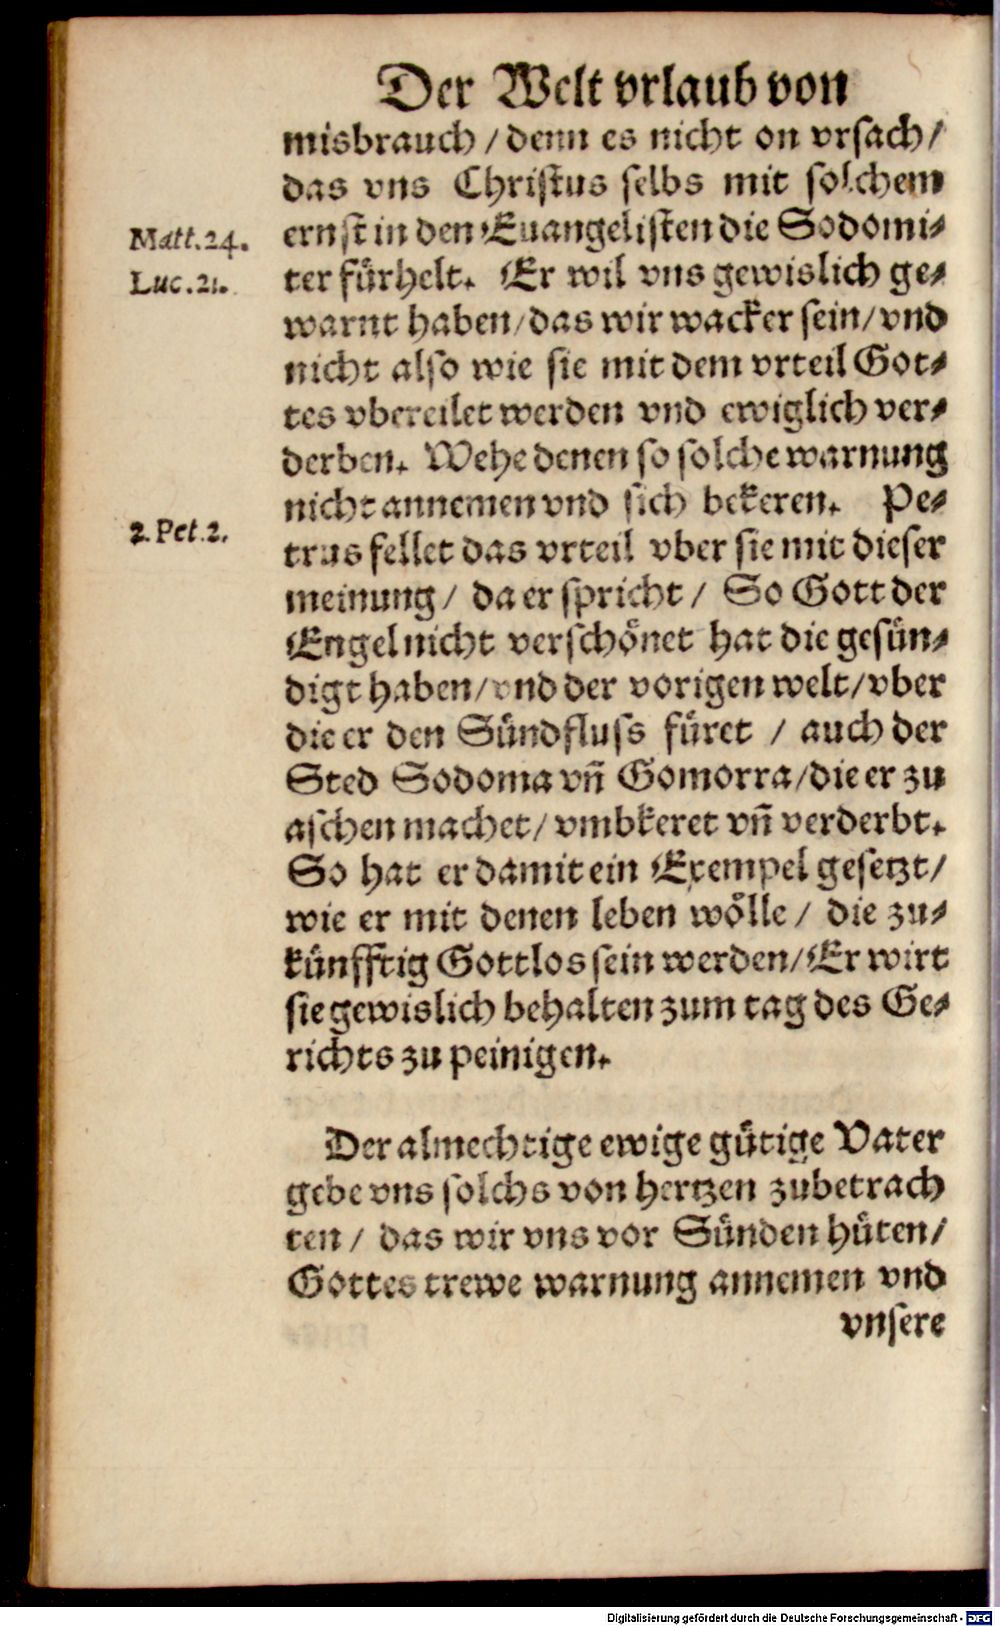 Der Welt vrlaub von
misbrauch / denn es nicht on vrsach /
das vns Christus selbs mit solchem
Matt.24. ernst in den Euangelisten die Sodomi⸗
Luc.21. ter fürhelt. Er wil vns gewislich ge⸗
warnt haben / das wir wacker sein / vnd
nicht also wie sie mit dem vrteil Got⸗
tes vbereilet werden vnd ewiglich ver⸗
derben. Wehe denen so solche warnung
nicht annemen vnd sich bekeren. Pe⸗
2. Pet.2. trus fellet das vrteil vber sie mit dieser
meinung / da er spricht / So Gott der
Engel nicht verschönet hat die gesün⸗
digt haben / vnd der vorigen welt / vber
die er den Sündfluss füret / auch der
Sted Sodoma vñ Gomorra / die er zu
aschen machet / vmbkeret vñ verderbt.
So hat er damit ein Exempel gesetzt /
wie er mit denen leben wölle / die zu⸗
künfftig Gottlos sein werden / Er wirt
sie gewislich behalten zum tag des Ge⸗
richts zu peinigen.
Der almechtige ewige gütige Vater
gebe vns solchs von hertzen zubetrach
ten / das wir vns vor Sünden hüten /
Gottes trewe warnung annemen vnd
vnsere
Digitalisierung gefördert durch die Deutsche Forschungsgemeinschaft - DFG